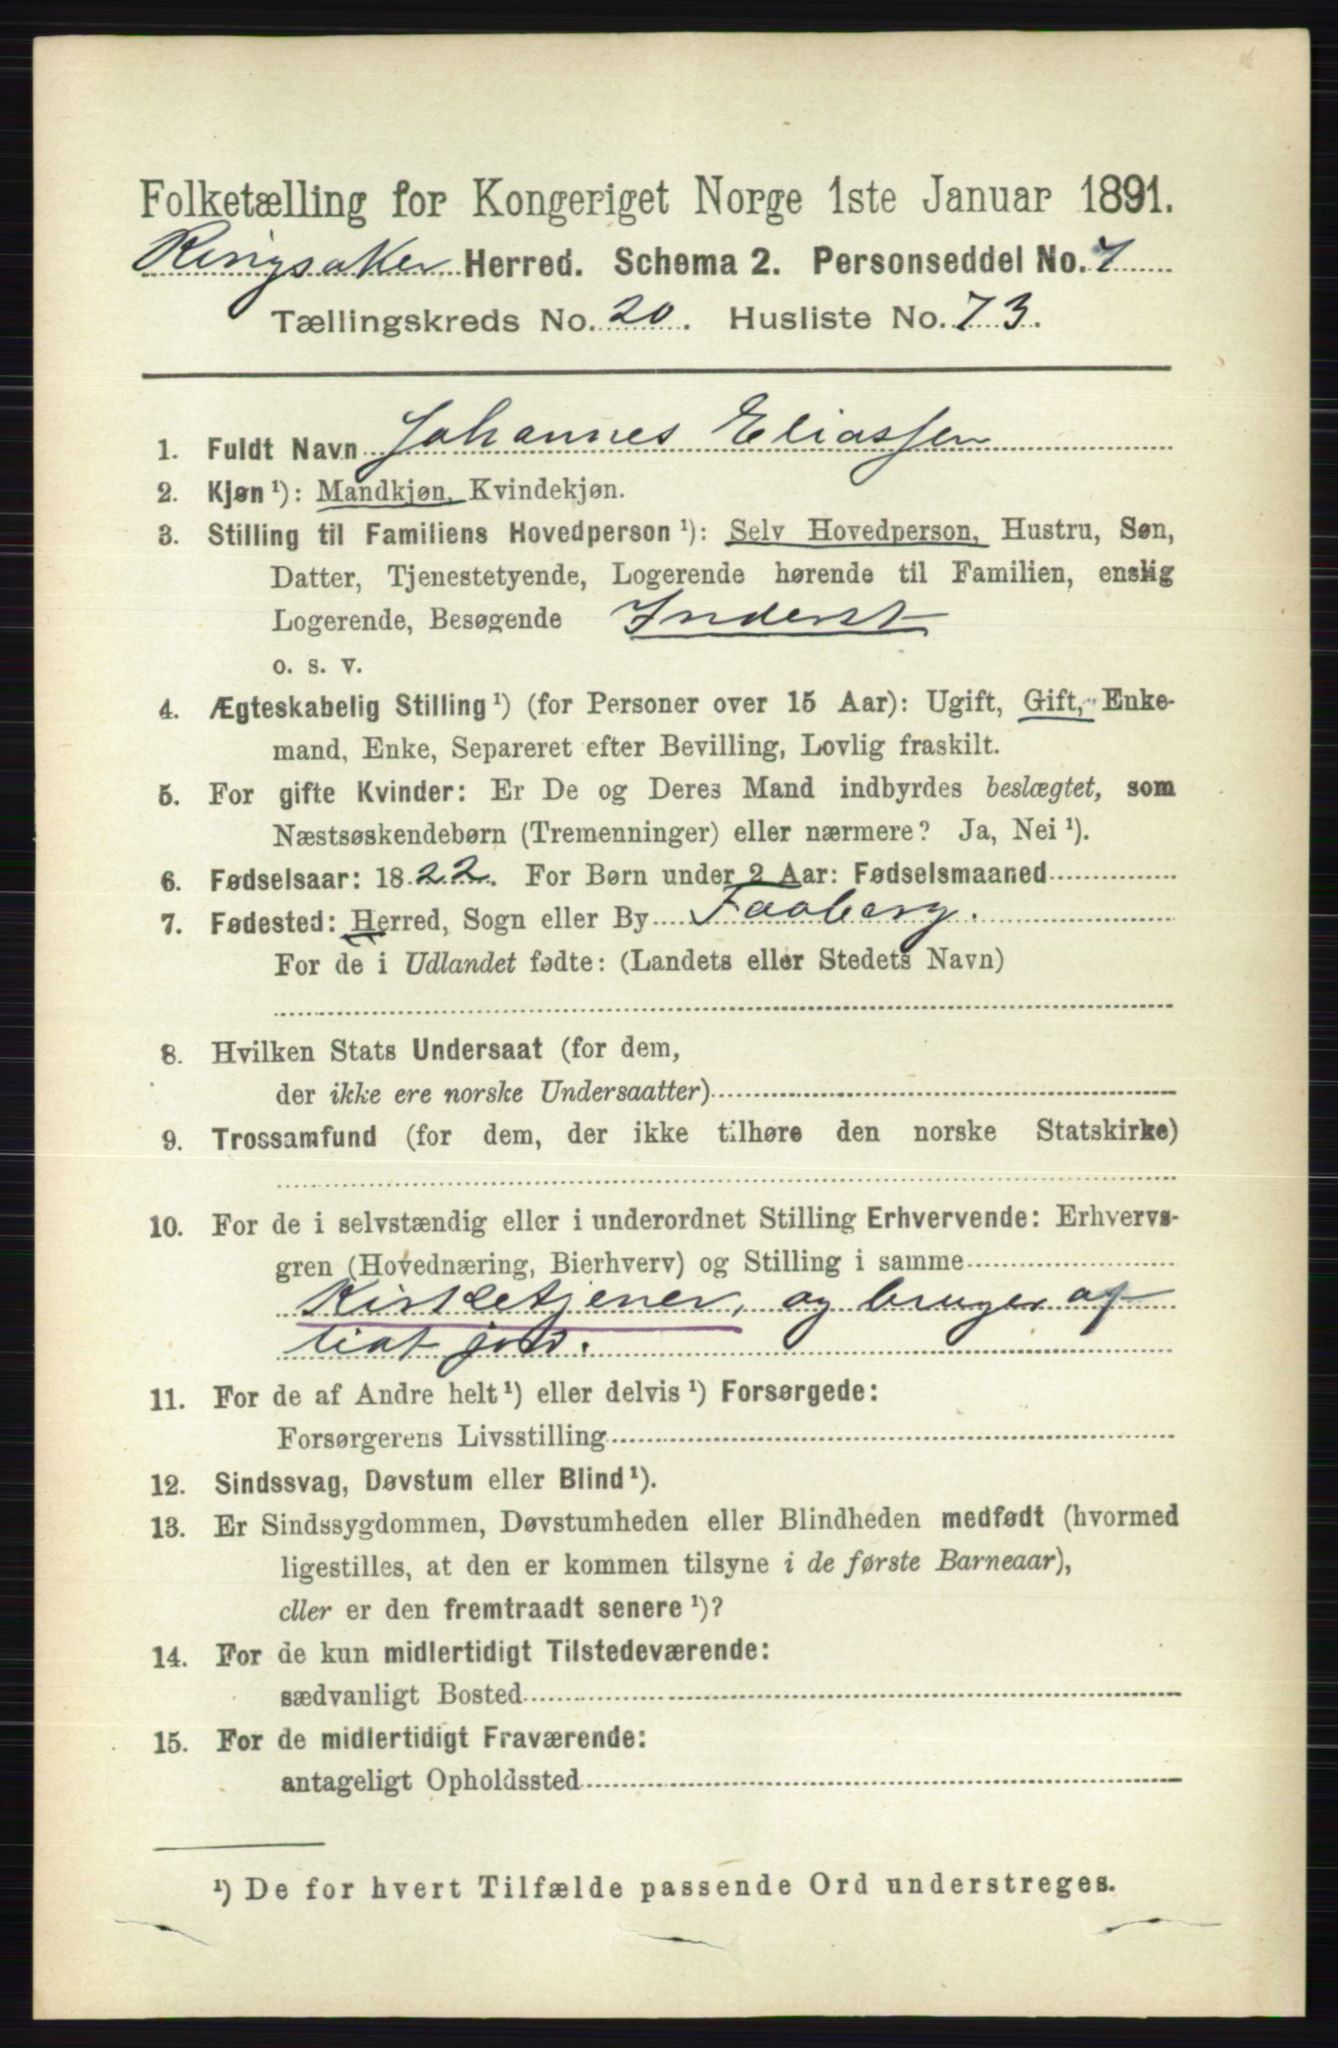 Folketælling for Kongeriget Norge 1ste Januar 1891.
Ringsaker Herred. Schema 2. Personseddel No. 7
Tællingskreds No. 20. Husliste No. 73.
1. Fuldt Navn Johannes Eliassen
2. Kjøn¹): Mandkjøn, Kvindekjøn.
3. Stilling til Familiens Hovedperson¹): Selv Hovedperson, Hustru, Søn,
Datter, Tjenestetyende, Logerende hørende til Familien, enslig
Logerende, Besøgende Inderst
o. s. v.
4. Ægteskabelig Stilling¹) (for Personer over 15 Aar): Ugift, Gift, Enke-
mand, Enke, Separeret efter Bevilling, Lovlig fraskilt.
5. For gifte Kvinder: Er De og Deres Mand indbyrdes beslægtet, som
Næstsøskendebørn (Tremenninger) eller nærmere? Ja, Nei¹).
6. Fødselsaar: 1822. For Børn under 2 Aar: Fødselsmaaned
7. Fødested: Herred, Sogn eller By Faaberg.
For de i Udlandet fødte: (Landets eller Stedets Navn)
8. Hvilken Stats Undersaat (for dem,
der ikke ere norske Undersaatter)
9. Trossamfund (for dem, der ikke tilhøre den norske Statskirke)
10. For de i selvstændig eller i underordnet Stilling Erhvervende: Erhvervs-
gren (Hovednæring, Bierhverv) og Stilling i samme
Kirketjener, og bruger af
lidt jord.
11. For de af Andre helt¹) eller delvis¹) Forsørgede:
Forsørgerens Livsstilling
12. Sindssvag, Døvstum eller Blind¹).
13. Er Sindssygdommen, Døvstumheden eller Blindheden medfødt (hvormed
ligestilles, at den er kommen tilsyne i de første Barneaar),
eller er den fremtraadt senere¹)?
14. For de kun midlertidigt Tilstedeværende:
sædvanligt Bosted
15. For de midlertidigt Fraværende:
antageligt Opholdssted
¹) De for hvert Tilfælde passende Ord understreges.